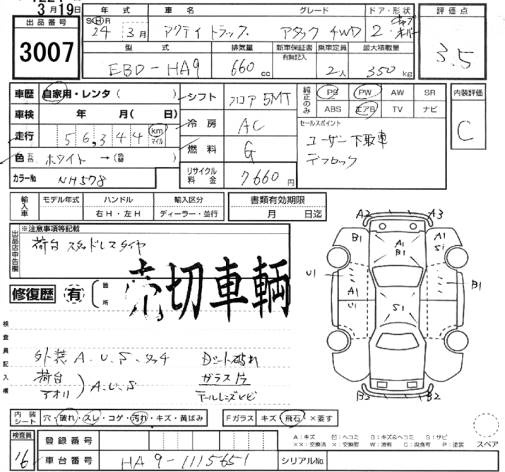 3月19日
出品番号 年式 車名 グレード ドア・形状 評価点
3007
24年 3月 アクティ トラック アタック 4WD 2
3.5
型式 排気量 新車保証書 有無記入 乗車定員 最大積載量
EBD-HA9 660cc 2人 350kg
車歴 自家用・レンタ( )
シフト フロア 5MT
純正のみ PS PW AW SR
ABS エアB TV ナビ
内装評価
C
車検 年 月( )
冷房 AC
セールスポイント
ユーザー下取車
デフロック
走行 56,344 km マイル
燃料 G
色 ホワイト →
リサイクル料金 7660円
カラーNo NH578
輸入車 モデル年式 ハンドル 輸入区分
右H・左H ディーラー・並行
書類有効期限
月 日迄
出品店申告欄
※注意事項等記載
荷台 スタッドレスタイヤ
修復歴 有 箇所
売切車輌
検査員記入欄
外装 A.U.S.
荷台
アオリ
A.U.S
ガラス
A2 A3
B1 A1 B1 S1
U1 U1 B1
S1
B2 B2
内装シート 穴・破れ・スレ・コゲ・汚れ・キズ・黄ばみ
Fガラス キズ・飛石・×要す
スペア
検査員
16
登録番号
車台番号 HA9-1115651
シリアルNo.